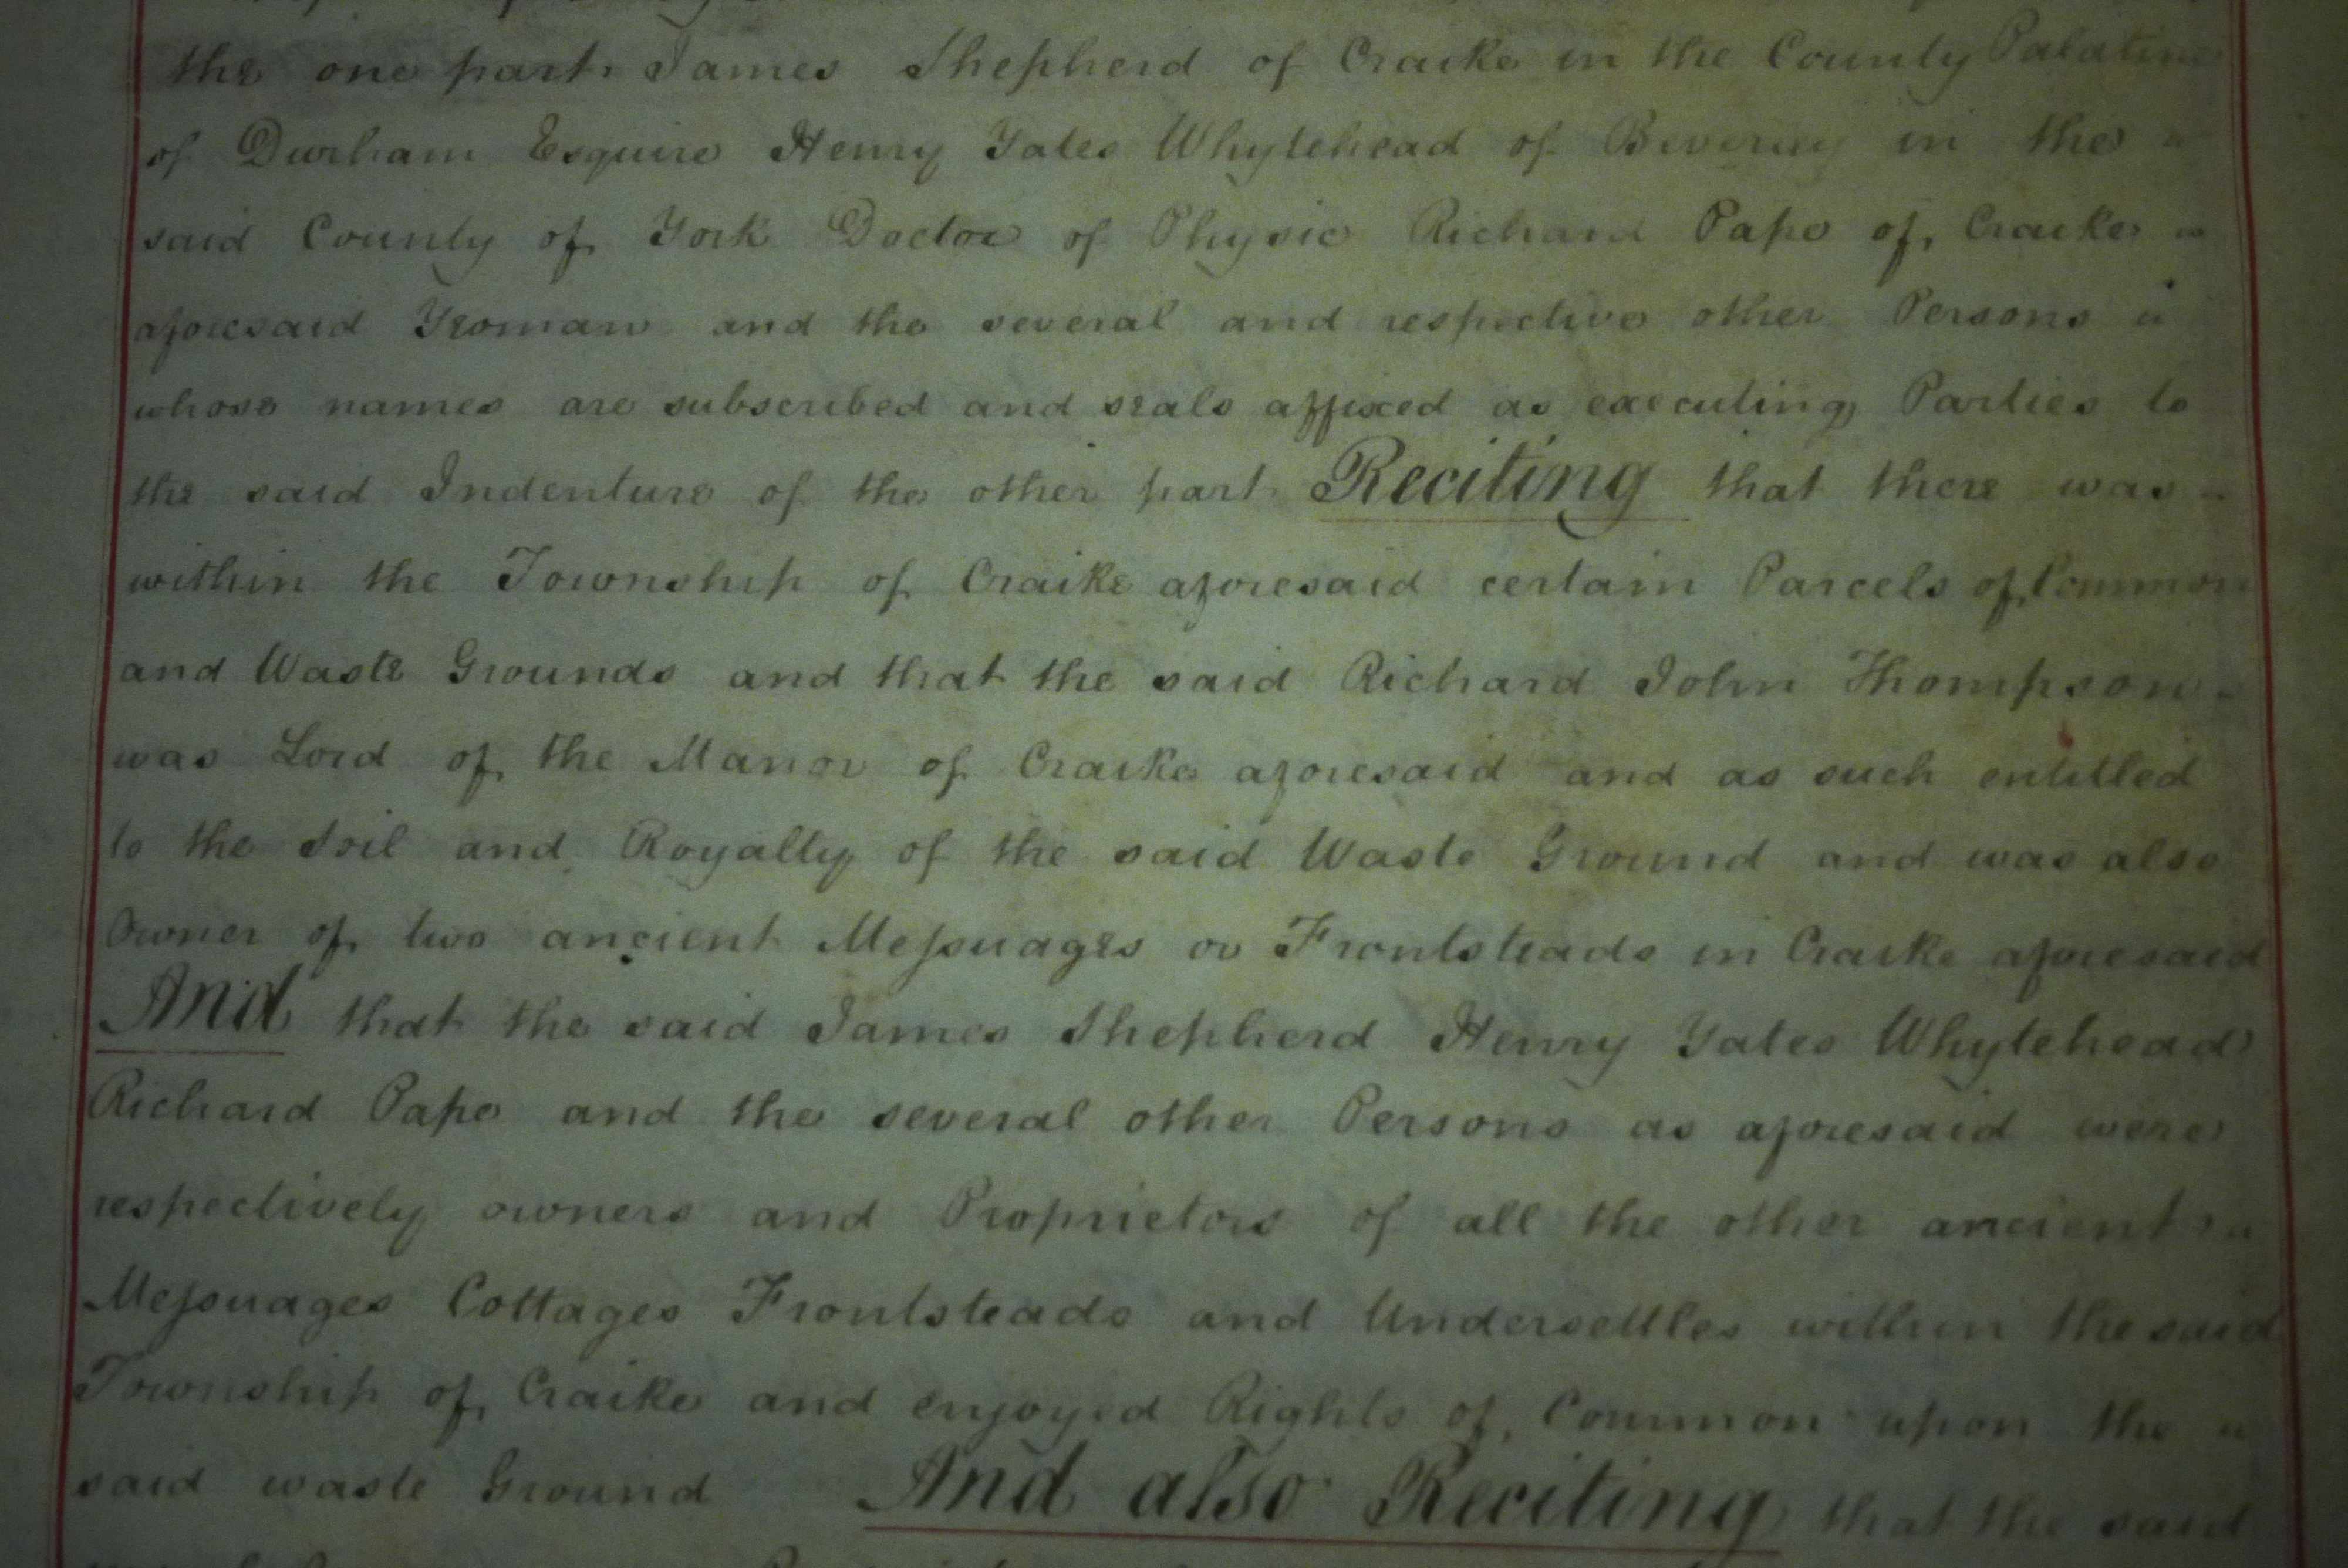 the one part James Shepherd of Craike in the County Palatine
of Durham Esquire Henry Yates Whytehead of Beverley in the
said County of York Doctor of Physic Richard Pape of Craike
aforesaid Yeoman and the several and respective other Persons
whose names are subscribed and seals affixed as executing Parties to
the said Indenture of the other part Reciting that there was
within the Township of Craike aforesaid certain Parcels of Common
and Waste Grounds and that the said Richard John Thompson
was Lord of the Manor of Craike aforesaid and as such entitled
to the Soil and Royalty of the said Waste Ground and was also
Owner of two ancient Messuages or Frontsteads in Craike aforesaid
And that the said James Shepherd Henry Yates Whytehead
Richard Pape and the several other Persons as aforesaid were
respectively owners and Proprietors of all the other ancient
Messuages Cottages Frontsteads and Undersettles within the said
Township of Craike and enjoyed Rights of Common upon the
said waste Ground And also Reciting that the said